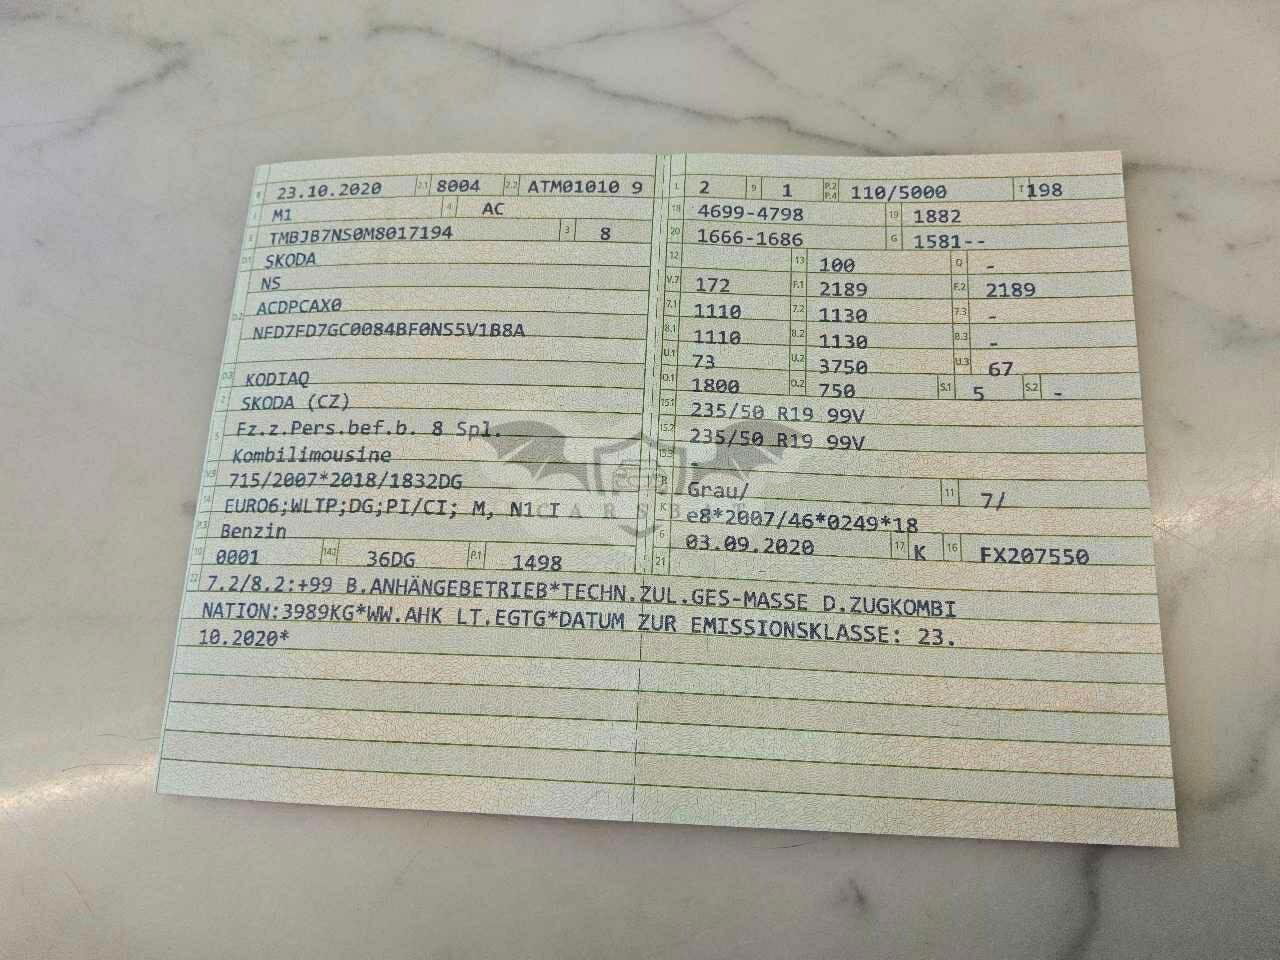 B 23.10.2020 2.1 8004 2.2 ATM01010 9
J M1 4 AC
E TMBJB7NS0M8017194 3 8
D.1 SKODA
NS
D.2 ACDPCAX0
NFD7FD7GC0084BF0NS5V1B8A
D.3 KODIAQ
2 SKODA (CZ)
5 Fz.z.Pers.bef.b. 8 Spl.
Kombilimousine
V.9 715/2007*2018/1832DG
14 EURO6;WLTP;DG;PI/CI; M, N1 I
P.3 Benzin
10 0001 14.1 36DG P.1 1498
L 2 9 1 P.2 P.4 110/5000 T 198
18 4699-4798 19 1882
20 1666-1686 G 1581--
12 13 100 Q -
V.7 172 F.1 2189 F.2 2189
7.1 1110 7.2 1130 7.3 -
8.1 1110 8.2 1130 8.3 -
U.1 73 U.2 3750 U.3 67
O.1 1800 O.2 750 S.1 5 S.2 -
15.1 235/50 R19 99V
15.2 235/50 R19 99V
15.3 -
R Grau/ 11 7/
K e8*2007/46*0249*18
6 03.09.2020 17 K 16 FX207550
21
22 7.2/8.2:+99 B.ANHÄNGEBETRIEB*TECHN.ZUL.GES-MASSE D.ZUGKOMBI
NATION:3989KG*WW.AHK LT.EGTG*DATUM ZUR EMISSIONSKLASSE: 23.
10.2020*